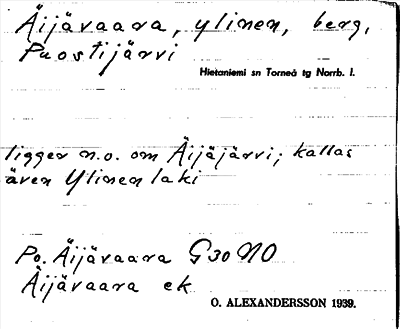 Äijävaara, ylinen, berg,
Puostijärvi
Hietaniemi sn Torneå tg Norrb. l.
ligger n.o. om Äijäjärvi; kallas
även Ylinen laki
Po. Äijävaara G30 NO
Äijävaara ek
O. ALEXANDERSSON 1939.